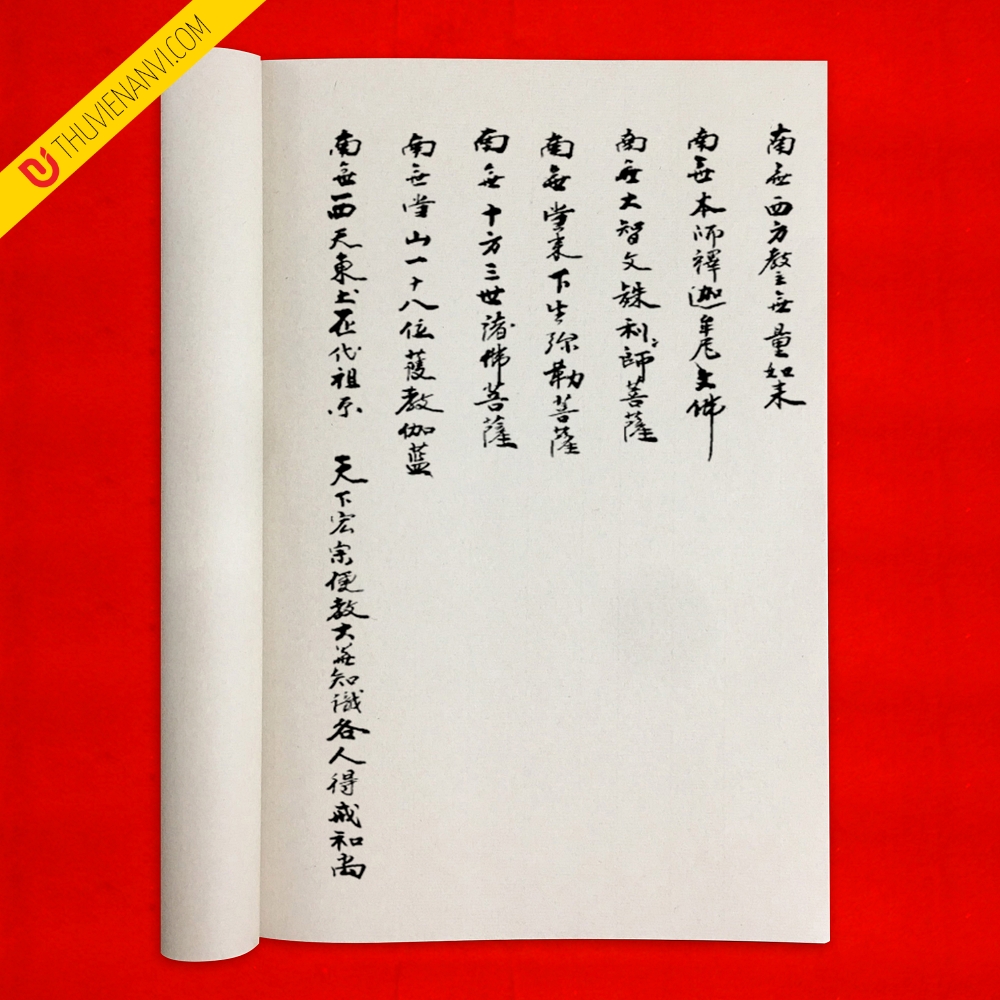 THUVIENANVI.COM
南無西方教主無量如来
南無本師釋迦牟尼文佛
南無大智文銖利師菩薩
南無當来下生弥勒菩薩
南無十方三世諸佛菩薩
南無當山一十八位護教伽藍
南無西天東土歷代祖師 天下宏宗便教大善知識各人得戒和尚